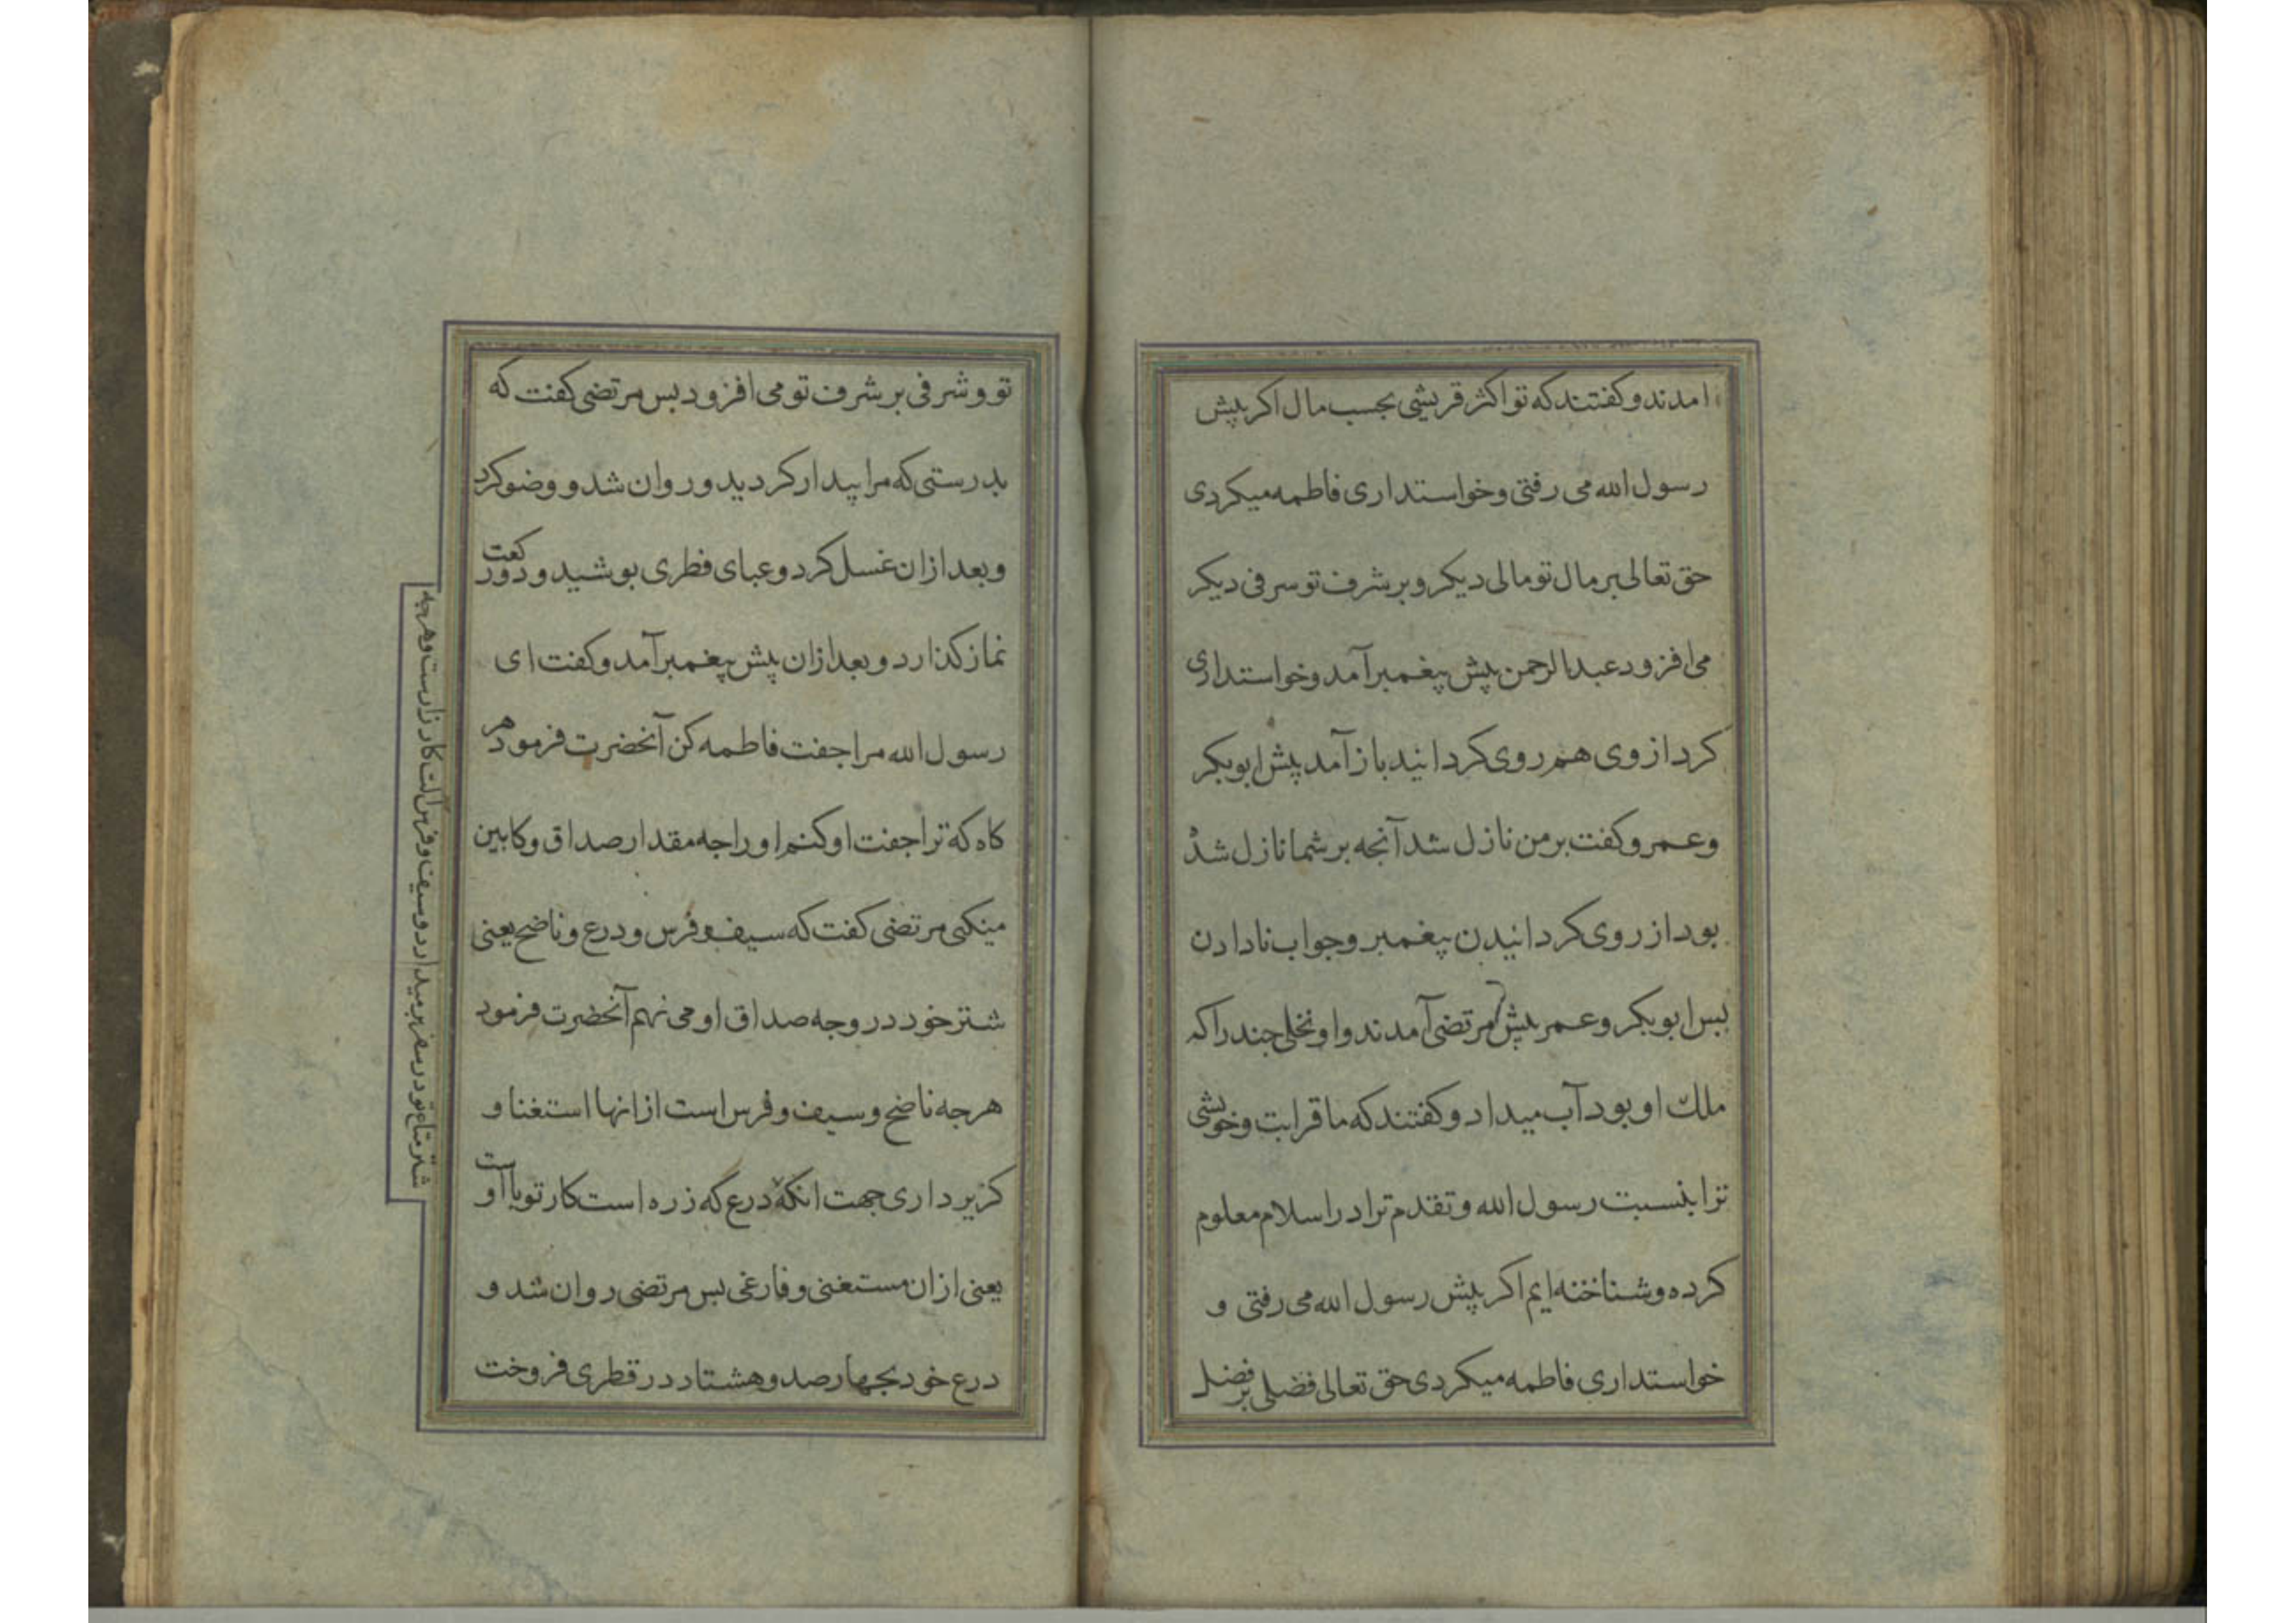 امدند و کفتند که تو اکثر قریشی بجسب مال اکر پیش
رسول الله می رفتی و خواستداری فاطمه میکردی
حق تعالی بر مال تو مالی دیکر و بر شرف تو سرفی دیکر
می افزود عبدالرحمن پیش پیغمبر آمد و خواستداری
کرد از وی هم روی کردانید باز آمد پیش ابوبکر
و عمر و کفت بر من نازل شد آنجه بر شما نازل شده
بود از روی کردانیدن پیغمبر و جواب نادادن
بس ابوبکر و عمر پیش مرتضی آمدند و او نخلی جند را که
ملک او بود آب میداد و کفتند که ما قرابت و خویشی
ترا بنسبت رسول الله و تقدم ترا در اسلام معلوم
کرده و شناخته ایم اکر پیش رسول الله می رفتی و
خواستداری فاطمه میکردی حق تعالی فضلی بر فضل
تو و شرفی بر شرف تو می افزود بس مرتضی کفت که
بدرستی که مرا بیدار کردید و روان شد و وضو کرد
و بعد از ان غسل کرد و عبای قطری بوشید و دو رکعت
نماز کذارد و بعد از ان پیش پیغمبر آمد و کفت ای
رسول الله مرا جفت فاطمه کن آنحضرت فرمود هر
کاه که ترا جفت او کنم او را جه مقدار صداق و کابین
میکنی مرتضی کفت که سیف و فرس و درع و ناضح یعنی
شتر خود در وجه صداق او می نهم آنحضرت فرمود
هرجه ناضح و سیف و فرس است از انها استغنا و
کزیر داری جهت انکه درع که زره است کار تو با اوست
یعنی از ان مستغنی و فارغی بس مرتضی روان شد و
درع خود بجهارصد و هشتاد در قطری فروخت
شتر متاع تو در سفر بر میدارد و سیف و فرس آلت کارزارست و هرجه